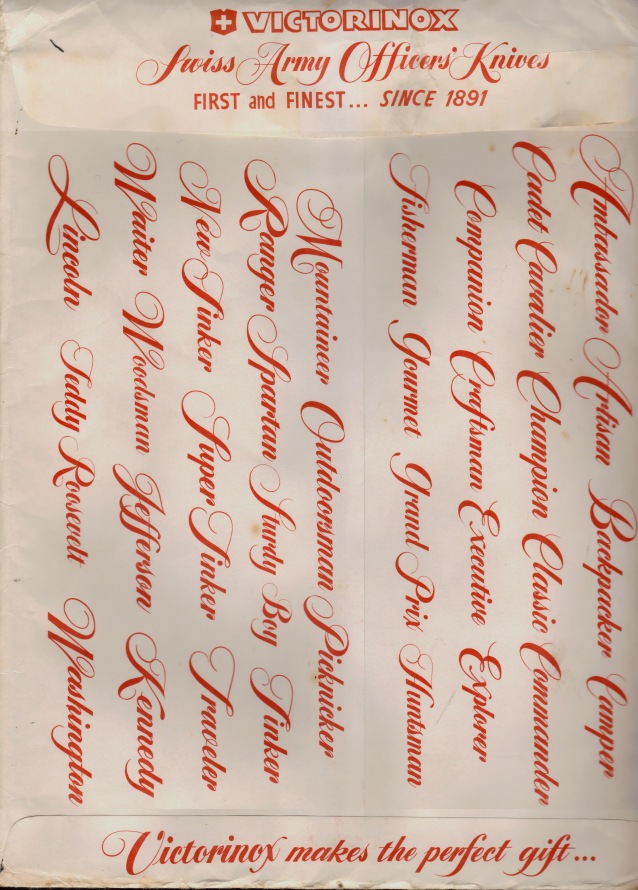 VICTORINOX
Swiss Army Officers' Knives
FIRST and FINEST... SINCE 1891
Ambassador Artisan Backpacker Camper
Cadet Cavalier Champion Classic Commander
Companion Craftsman Executive Explorer
Fisherman Gourmet Grand Prix Huntsman
Mountaineer Outdoorsman Picknicker
Ranger Spartan Sturdy Boy Tinker
New Tinker Super Tinker Traveler
Waiter Woodsman Jefferson Kennedy
Lincoln Teddy Roosevelt Washington
Victorinox makes the perfect gift...